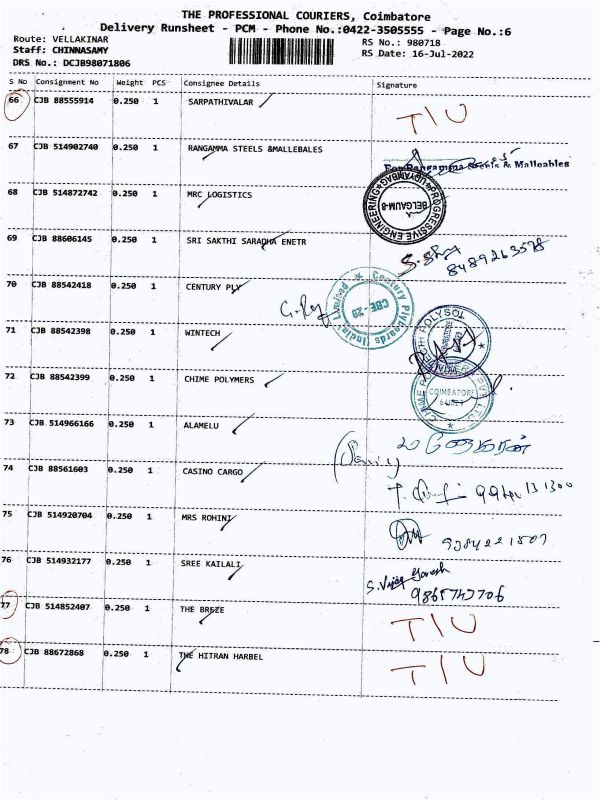 THE PROFESSIONAL COURIERS, Coimbatore
Delivery Runsheet - PCM - Phone No.:0422-3505555 - Page No.:6
Route: VELLAKINAR RS No.: 980718
Staff: CHINNASAMY RS Date: 16-Jul-2022
DRS No.: DCJB98071806
S No Consignment No Weight PCS Consignee Details Signature
66 CJB 88555914 0.250 1 SARPATHIVALAR T/U
67 CJB 514902740 0.250 1 RANGAMMA STEELS &MALLEBALES For Rangamma Steels & Malleables
68 CJB 514872742 0.250 1 MRC LOGISTICS PROGRESSIVE ENGINEERING BELGAUM-8 UDYAMBAG
69 CJB 88606145 0.250 1 SRI SAKTHI SARADHA ENETR 8489263578
70 CJB 88542418 0.250 1 CENTURY PLY Century Plyboards (India) Limited CBE - 29
71 CJB 88542398 0.250 1 WINTECH POLYSOL
72 CJB 88542399 0.250 1 CHIME POLYMERS CHIME COIMBATORE PVT LTD
73 CJB 514966166 0.250 1 ALAMELU
74 CJB 88561603 0.250 1 CASINO CARGO
75 CJB 514920704 0.250 1 MRS ROHINI
76 CJB 514932177 0.250 1 SREE KAILALI S. Vijay Ganesh
9865743706
77 CJB 514852407 0.250 1 THE BREZE T/U
78 CJB 88672868 0.250 1 THE HITRAN HARBEL T/U